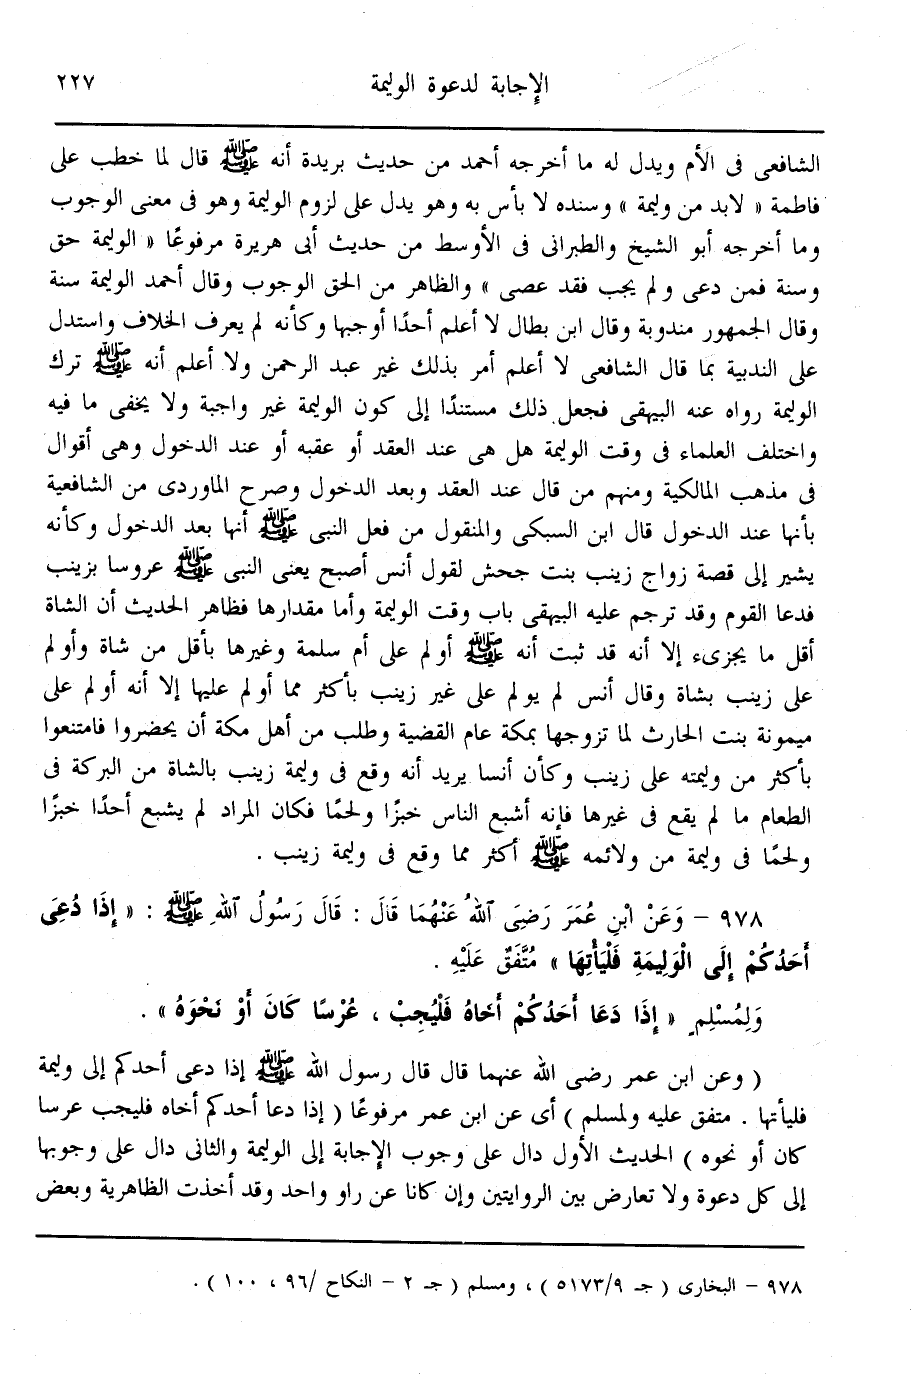 الإجابة لدعوة الوليمة ٢٢٧
الشافعى فى الأم ويدل له ما أخرجه أحمد من حديث بريدة أنه ﷺ قال لما خطب على
فاطمة « لابد من وليمة » وسنده لا بأس به وهو يدل على لزوم الوليمة وهو فى معنى الوجوب
وما أخرجه أبو الشيخ والطبرانى فى الأوسط من حديث أبى هريرة مرفوعًا « الوليمة حق
وسنة فمن دعى ولم يجب فقد عصى » والظاهر من الحق الوجوب وقال أحمد الوليمة سنة
وقال الجمهور مندوبة وقال ابن بطال لا أعلم أحدًا أوجبها وكأنه لم يعرف الخلاف واستدل
على الندبية بما قال الشافعى لا أعلم أمر بذلك غير عبد الرحمن ولا أعلم أنه ﷺ ترك
الوليمة رواه عنه البيهقى فجعل ذلك مستندًا إلى كون الوليمة غير واجبة ولا يخفى ما فيه
واختلف العلماء فى وقت الوليمة هل هى عند العقد أو عقبه أو عند الدخول وهى أقوال
فى مذهب المالكية ومنهم من قال عند العقد وبعد الدخول وصرح الماوردى من الشافعية
بأنها عند الدخول قال ابن السبكى والمنقول من فعل النبى ﷺ أنها بعد الدخول وكأنه
يشير إلى قصة زواج زينب بنت جحش لقول أنس أصبح يعنى النبى ﷺ عروسا بزينب
فدعا القوم وقد ترجم عليه البيهقى باب وقت الوليمة وأما مقدارها فظاهر الحديث أن الشاة
أقل ما يجزىء إلا أنه قد ثبت أنه ﷺ أولم على أم سلمة وغيرها بأقل من شاة وأولم
على زينب بشاة وقال أنس لم يولم على غير زينب بأكثر مما أولم عليها إلا أنه أولم على
ميمونة بنت الحارث لما تزوجها بمكة عام القضية وطلب من أهل مكة أن يحضروا فامتنعوا
بأكثر من وليمته على زينب وكأن أنسا يريد أنه وقع فى وليمة زينب بالشاة من البركة فى
الطعام ما لم يقع فى غيرها فإنه أشبع الناس خبزًا ولحمًا فكان المراد لم يشبع أحدًا خبزًا
ولحمًا فى وليمة من ولائمه ﷺ أكثر مما وقع فى وليمة زينب .
٩٧٨ – وَعَنْ ابْنِ عُمَرَ رَضِىَ اللهُ عَنْهُمَا قَالَ : قَالَ رَسُولُ اللهِ ﷺ : « إِذَا دُعِىَ
أَحَدُكُمْ إِلَى الْوَلِيمَةِ فَلْيَأْتِهَا » مُتَّفَقٌ عَلَيْهِ .
وَلِمُسْلِمٍ « إِذَا دَعَا أَحَدُكُمْ أَخَاهُ فَلْيُجِبْ ، عُرْسًا كَانَ أَوْ نَحْوَهُ » .
( وعن ابن عمر رضى الله عنهما قال قال رسول الله ﷺ إذا دعى أحدكم إلى وليمة
فليأتها . متفق عليه ولمسلم ) أى عن ابن عمر مرفوعًا ( إذا دعا أحدكم أخاه فليجب عرسا
كان أو نحوه ) الحديث الأول دال على وجوب الإجابة إلى الوليمة والثانى دال على وجوبها
إلى كل دعوة ولا تعارض بين الروايتين وإن كانا عن راو واحد وقد أخذت الظاهرية وبعض
٩٧٨ – البخارى ( جـ ٥١٧٣/٩ ) ، ومسلم ( جـ ٢ – النكاح /٩٦ ، ١٠٠ ) .